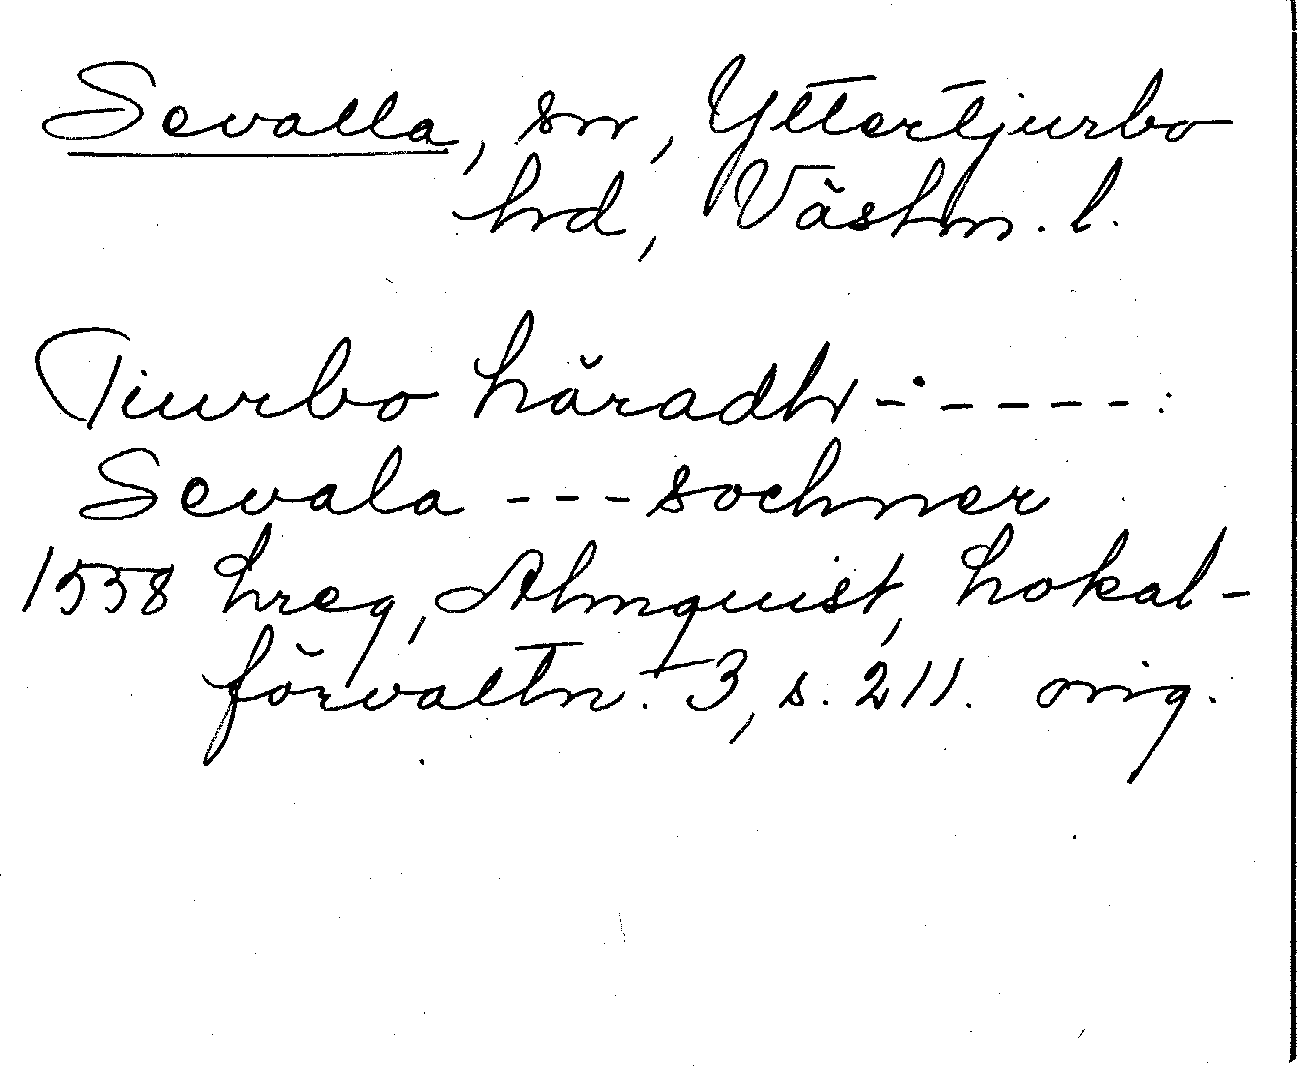 Sevalla, sn, Yttertjurbo
hd, Västm. l.
Tiurbo häradh - - - - - :
Sevala - - - sochner
1558 hreg, Almquist, Lokal-
förvaltn. 3, s. 211. orig.